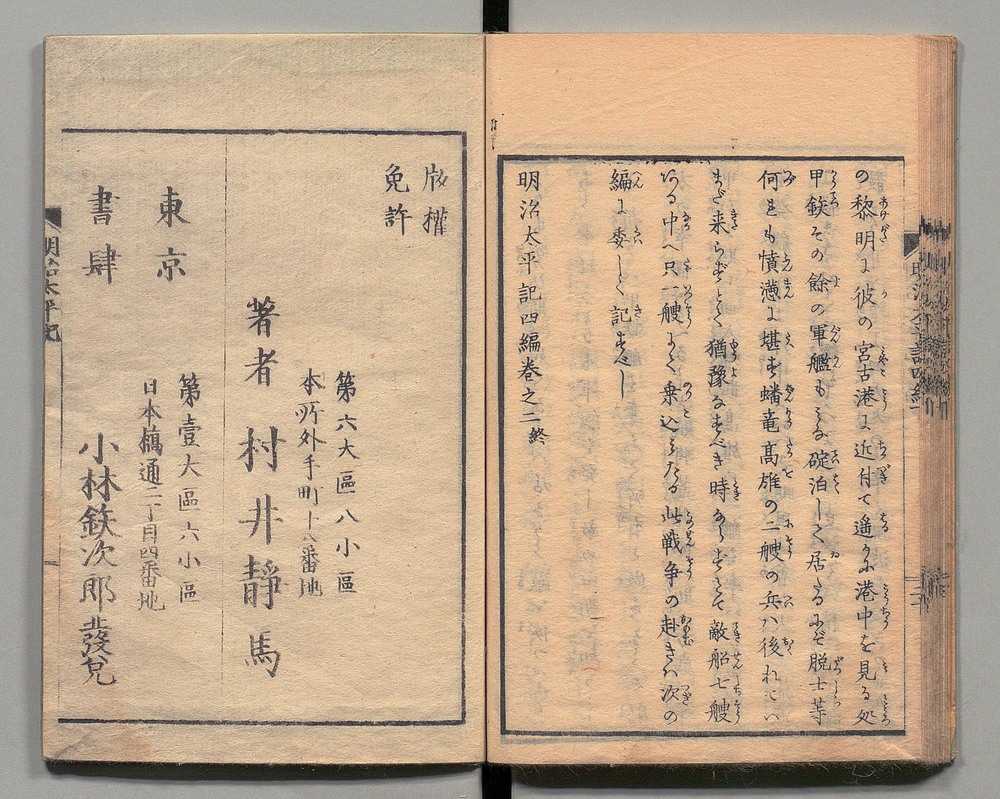 の黎明に彼の宮古港に近付て遥かに港中を見る処
甲鉄その餘の軍艦もみな碇泊して居たるにぞ脱士等
何れも憤懣に堪ず蟠竜高雄の二艘の兵ハ後れてい
まだ来らずとて猶豫なすべき時ならずとて敵船七艘
なる中へ只一艘にて乗込みたる此戦争の赴きハ次の
編に委しく記すべし
明治太平記四編巻之二終
版權
免許
第六大區八小區
本所外手町十八番地
著者 村井靜馬
東京
第壹大區六小區
日本橋通二丁目四番地
書肆 小林鉄次郎發兌
明治太平記